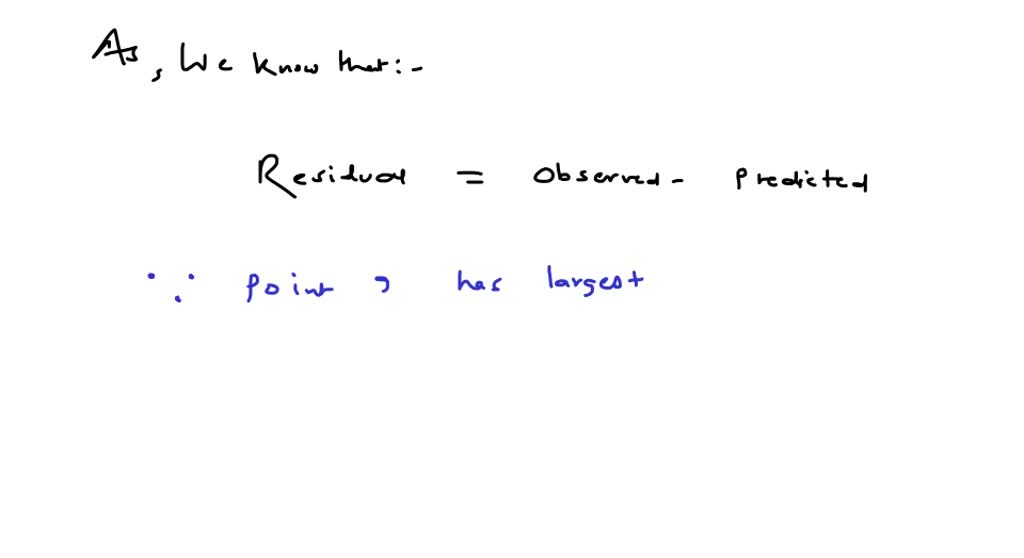 As, We know that:-
Residual = Observed - Predicted
∵ point , has largest